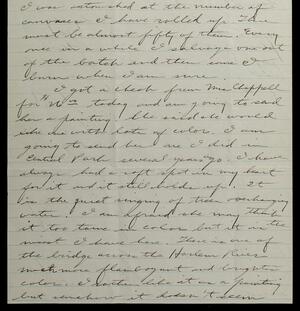 I was astonished at the number of
canvases I have rolled up. There
must be almost fifty of them. Every
once in a while I salvage one out
of the batch and then some I
burn when I am sure.
I got a check from Mrs. Chappell
for today and am going to send
her a painting. She said she would
like one with lots of color. I am
going to send her one I did in
Central Park several years ago. I have
always had a soft spot in my heart
for it and it still holds up. It
is the quiet singing of trees overhanging
water. I am afraid she may think
it too tame in color but it is the
most I have here. There is one of
the bridge across the Harlem River
much more flamboyant and brighter
color. I rather like it as a painting
but somehow it doesn't seem